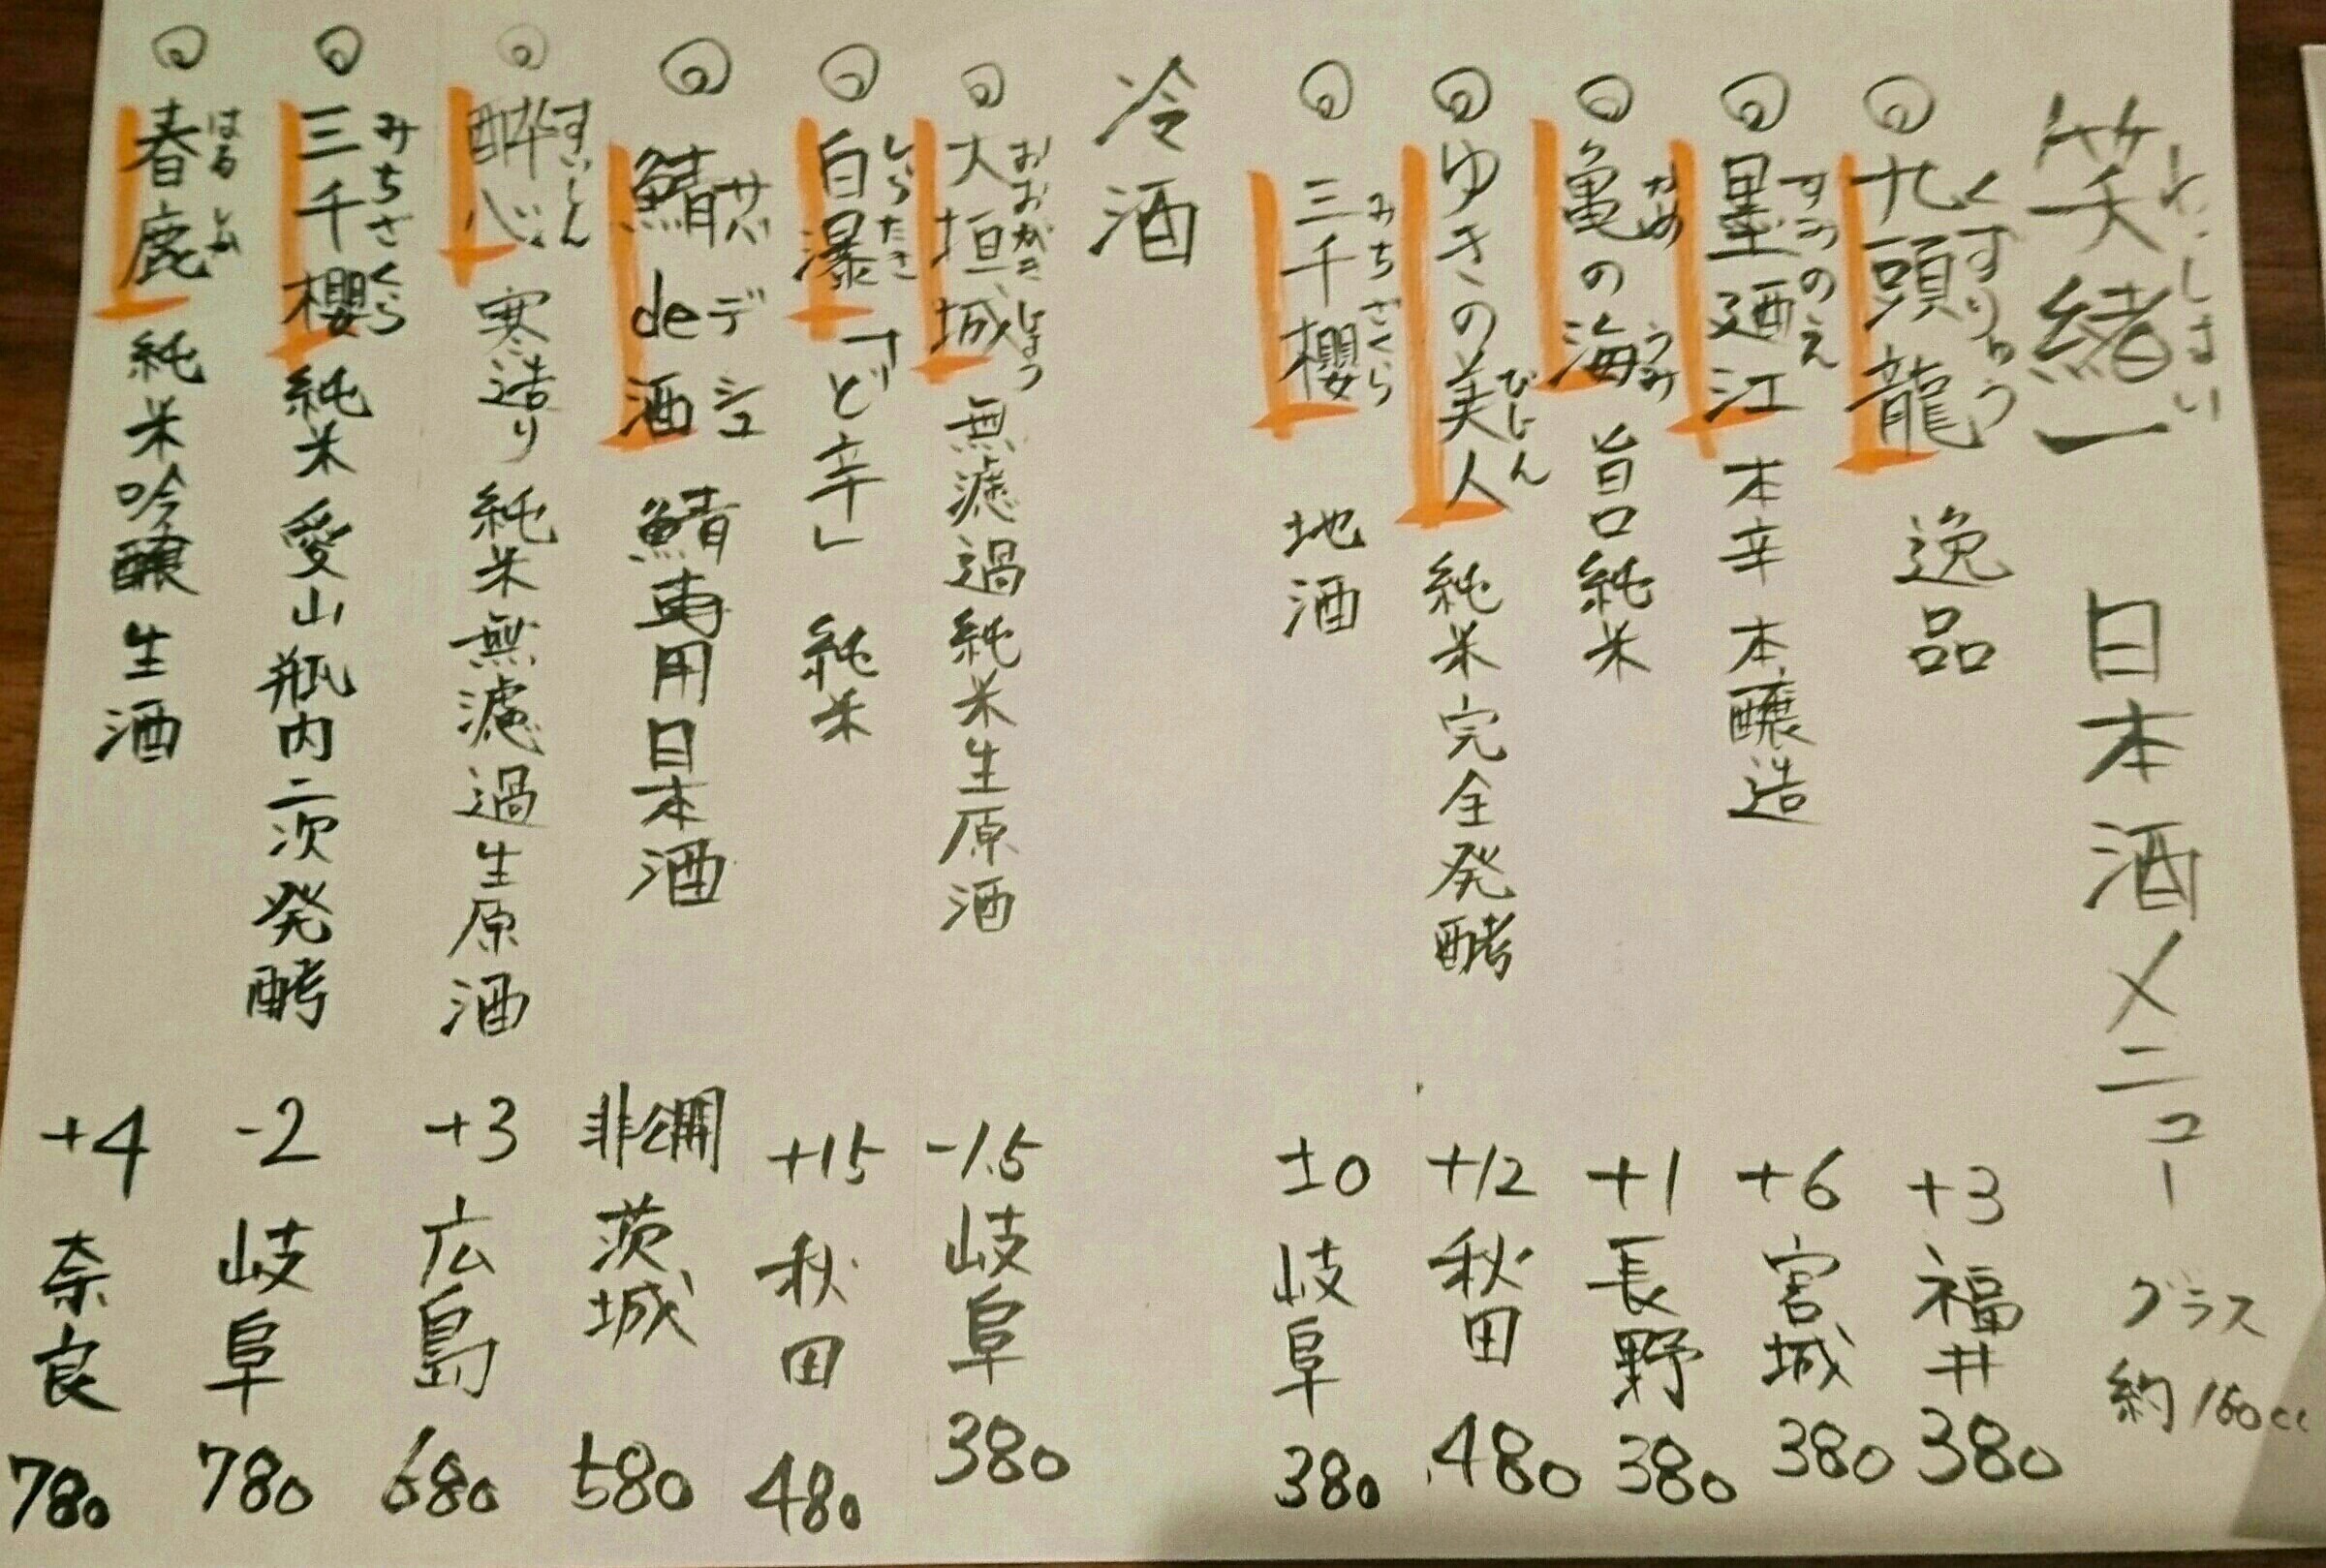 笑緒一 日本酒メニュー グラス 約160cc
わ しょ い
◎九頭龍 逸品 +3 福井 380
くずりゅう
◎墨廼江 本辛 本醸造 +6 宮城 380
すみのえ
◎亀の海 旨口純米 +1 長野 380
かめ うみ
◎ゆきの美人 純米完全発酵 +12 秋田 480
びじん
◎三千櫻 地酒 ±0 岐阜 380
みちざくら
冷酒
◎大垣城 無濾過純米生原酒 -1.5 岐阜 380
おおがきじょう
◎白瀑「ど辛」純米 +15 秋田 480
しらたき
◎鯖de酒 鯖専用日本酒 非公開 茨城 580
サバ デ シュ
◎酔心 寒造り 純米無濾過生原酒 +3 広島 680
すいしん
◎三千櫻 純米 愛山 瓶内二次発酵 -2 岐阜 780
みちざくら
◎春鹿 純米吟醸 生酒 +4 奈良 780
はるしか